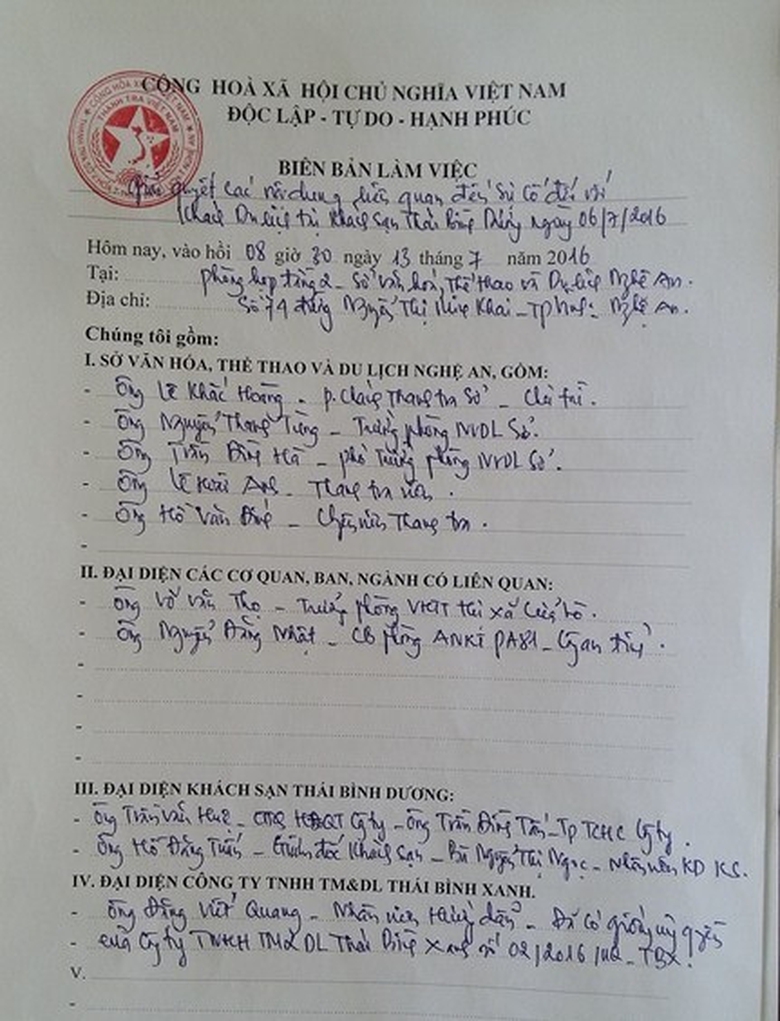 CỘNG HOÀ XÃ HỘI CHỦ NGHĨA VIỆT NAM
ĐỘC LẬP - TỰ DO - HẠNH PHÚC
BIÊN BẢN LÀM VIỆC
Giải quyết các nội dung liên quan đến sự cố đối với
khách Du lịch tại khách sạn Thái Bình Dương ngày 06/7/2016
Hôm nay, vào hồi 08 giờ 30 ngày 13 tháng 7 năm 2016
Tại: phòng họp tầng 2 - Sở văn hoá, Thể thao và Du lịch Nghệ An.
Địa chỉ: Số 74 đường Nguyễn Thị Minh Khai - Tp Vinh - Nghệ An.
Chúng tôi gồm:
I. SỞ VĂN HÓA, THỂ THAO VÀ DU LỊCH NGHỆ AN, GỒM:
- Ông Lê Khắc Hoàng - p. Chánh Thanh tra Sở - Chủ trì.
- Ông Nguyễn Thanh Tùng - Trưởng phòng NVDL Sở.
- Ông Trần Đình Hà - phó Trưởng phòng NVDL Sở.
- Ông Lê Hoài Anh - Thanh tra viên.
- Ông Hồ Văn - Chuyên viên Thanh tra.
-
II. ĐẠI DIỆN CÁC CƠ QUAN, BAN, NGÀNH CÓ LIÊN QUAN:
- Ông Võ Văn Thọ - Trưởng phòng VHTT thị xã Cửa Lò.
- Ông Nguyễn Đăng Nhật - CB phòng ANKT PA81 - C.an tỉnh.
-
-
-
-
III. ĐẠI DIỆN KHÁCH SẠN THÁI BÌNH DƯƠNG:
- Ông Trần Văn Huệ - HĐQT Cty - Ông Trần Đình Tấn - Tp TCHC Cty.
- Ông Hồ Đăng Tuấn - Giám đốc Khách sạn - Bà Nguyễn Thị Ngọc - Nhân viên KD KS.
IV. ĐẠI DIỆN CÔNG TY TNHH TM&DL THÁI BÌNH XANH.
- Ông Đặng Viết Quang - Nhân viên Hướng dẫn - Đã có giấy uỷ quyền
- của Cty TNHH TM& DL Thái Bình Xanh số 02/2016/UQ-TBX.
V.
-